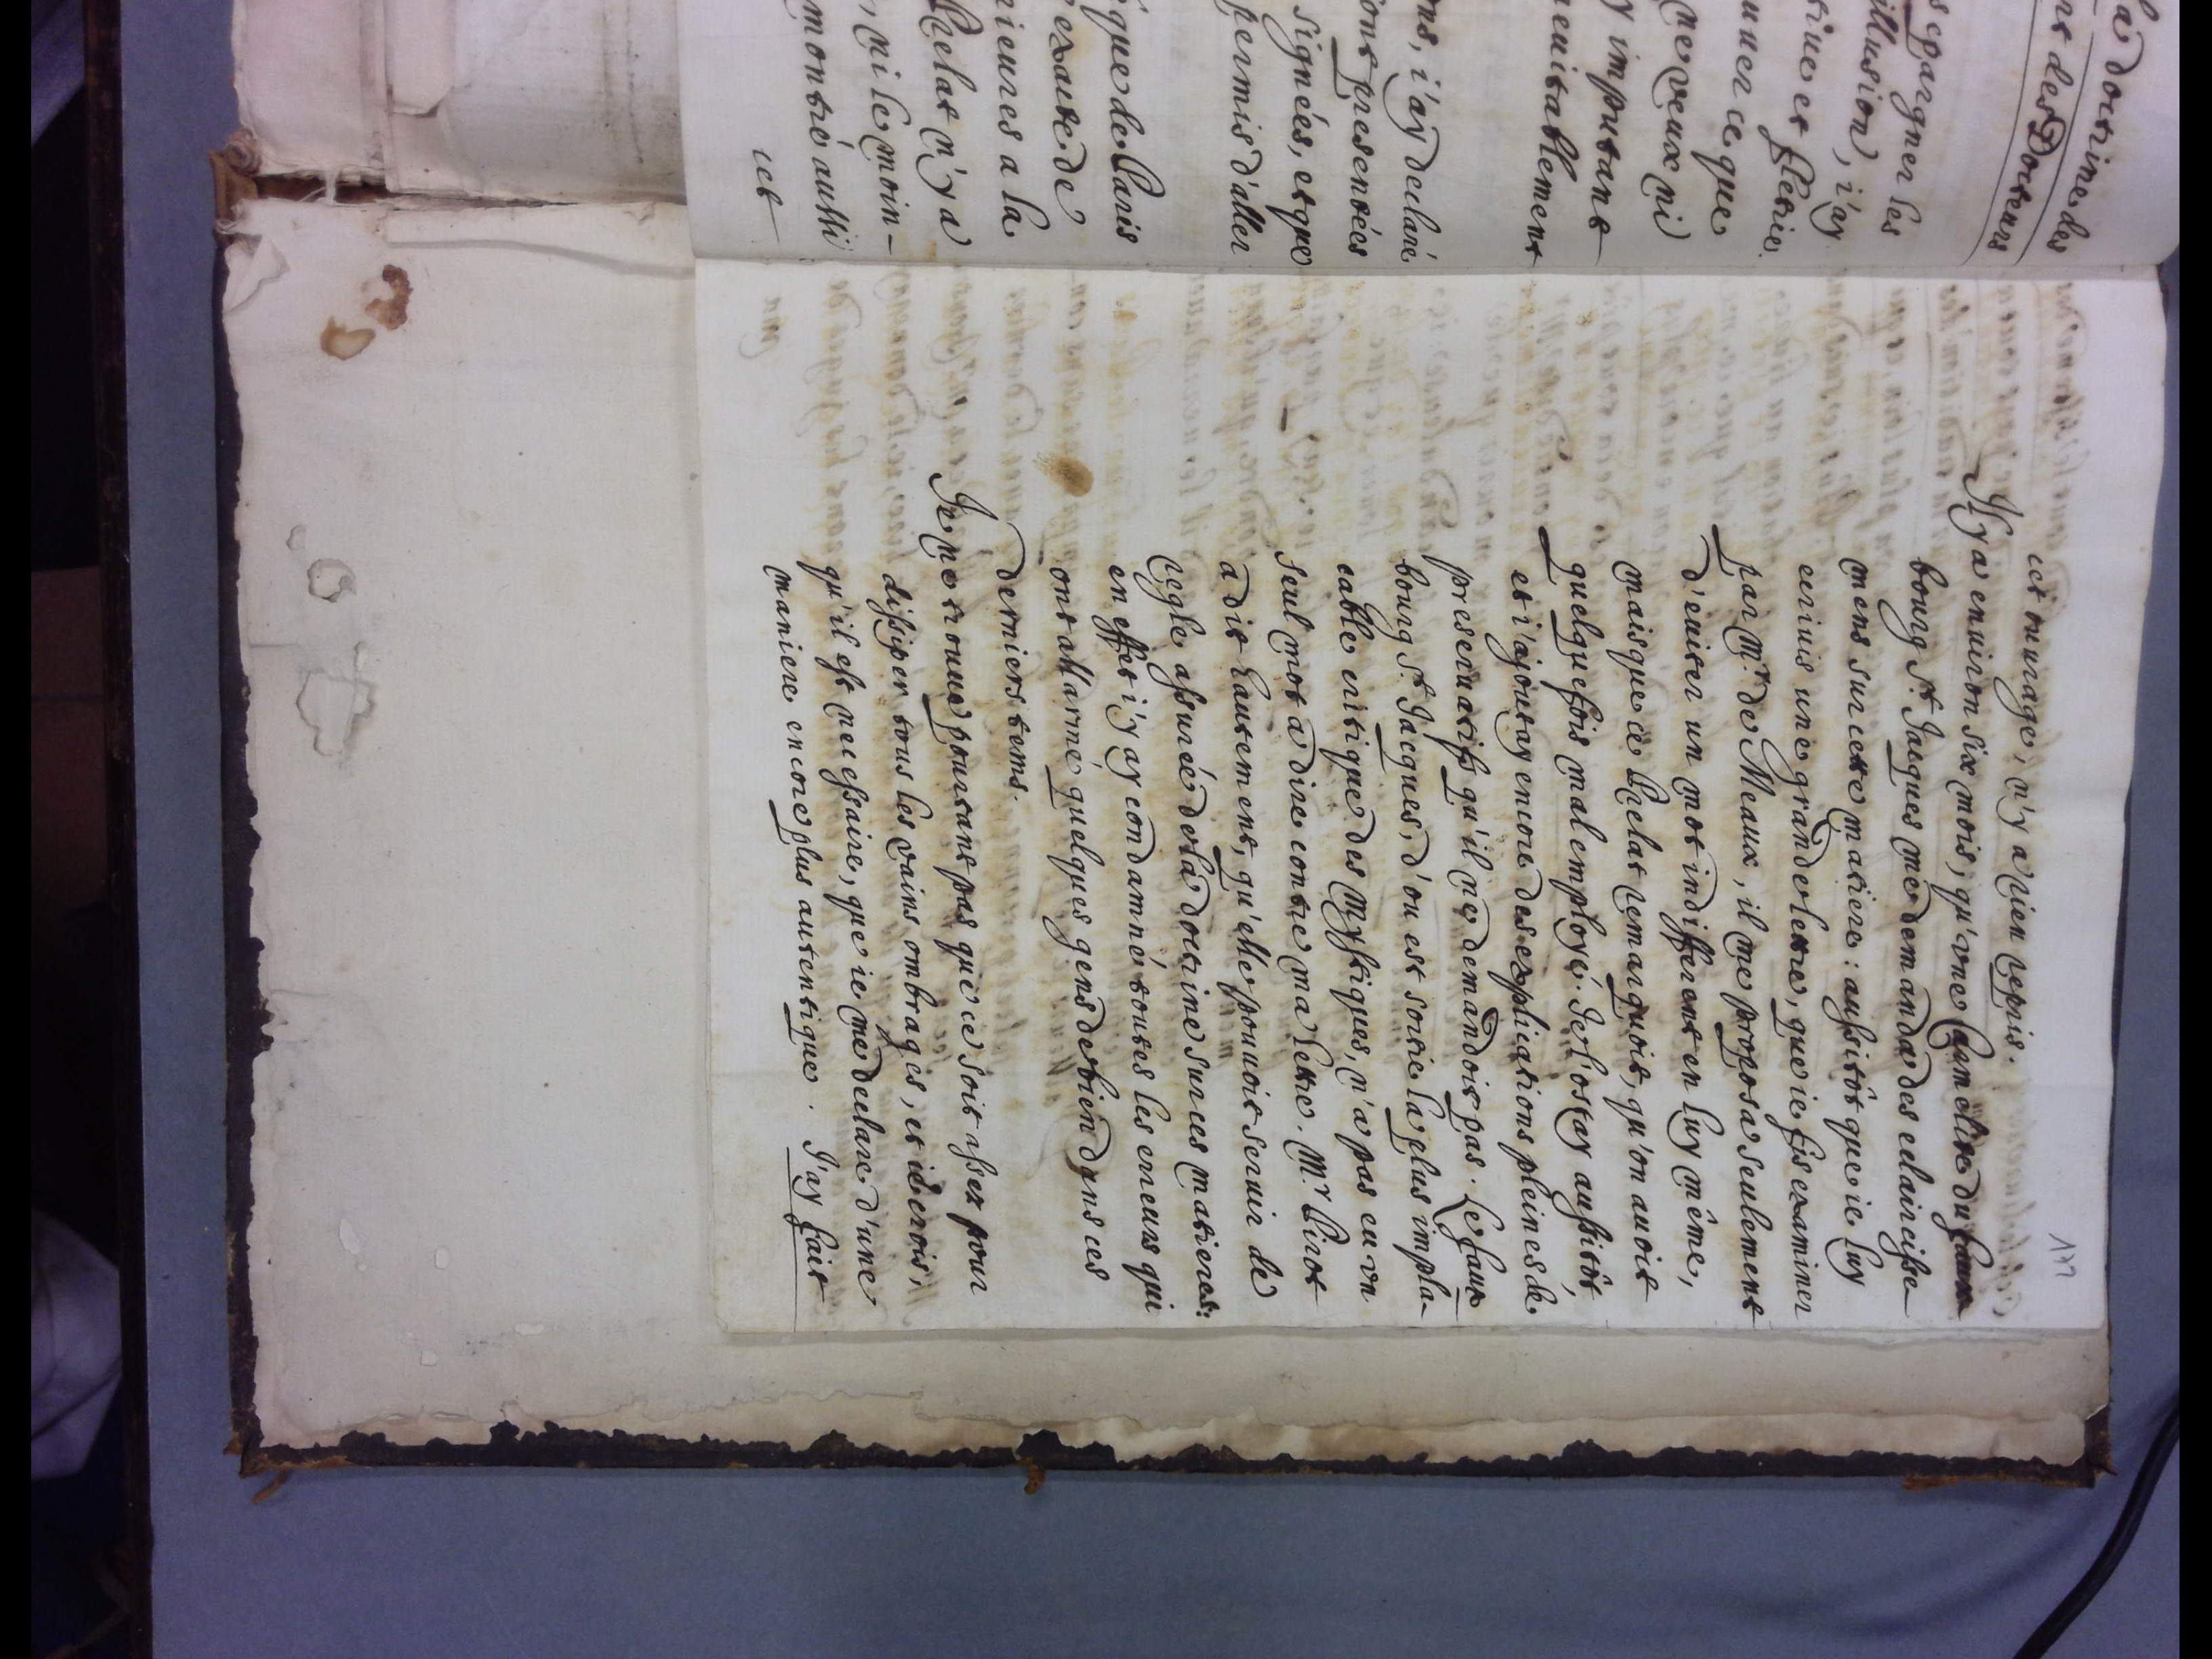 la doctrine des
nt des Docteurs
s epargner les
illusion, i'ay
tiue et fletrie
uuer ce que
ne veux ni
y imputant
ueuitablement
ns, i'ay declaré
ions presentées
signées, et que
permis d'aller
que de Paris
exacte de
rieures a la
Prelat n'y a
, ni le moin-
montré aussi
cet
177
cet ouurage, n'y a rien repris.
Il y a enuiron six mois, qu'vne Carmelite du faux
bourg St. Jacques me demanda des eclaircisse
mens sur cette matiere: aussitôt que ie luy
ecriuis une grande lettre, que ie fis examiner
par Mr. de Meaux, il me proposa seulement
d'euiter un mot indifferent en luy même,
mais que ce Prelat remarquoit, qu'on auoit
quelquefois mal employé. Je l'ostay aussitôt,
et i'ajoutay encore des explications pleines de
preseruatifs qu'il ne demandoit pas. Le faux
bourg St. Jacques, d'ou est sortie la plus impla-
cable critique des Mystiques, n'a pas eu vn
seul mot a dire contre ma lettre. Mr. Pirot
a dit hautement, qu'elle pouuoit seruir de
regle assurée de la doctrine sur ces matieres:
en effet i'y ay condamné toutes les erreurs qui
ont allarmé quelques gens de bien dans ces
derniers tems.
Je ne trouue pourtant pas que ce soit assez pour
dissiper tous les vains ombrages, et ie crois,
qu'il est necessaire, que ie me declare d'une
maniere encore plus autentique. J'ay fait